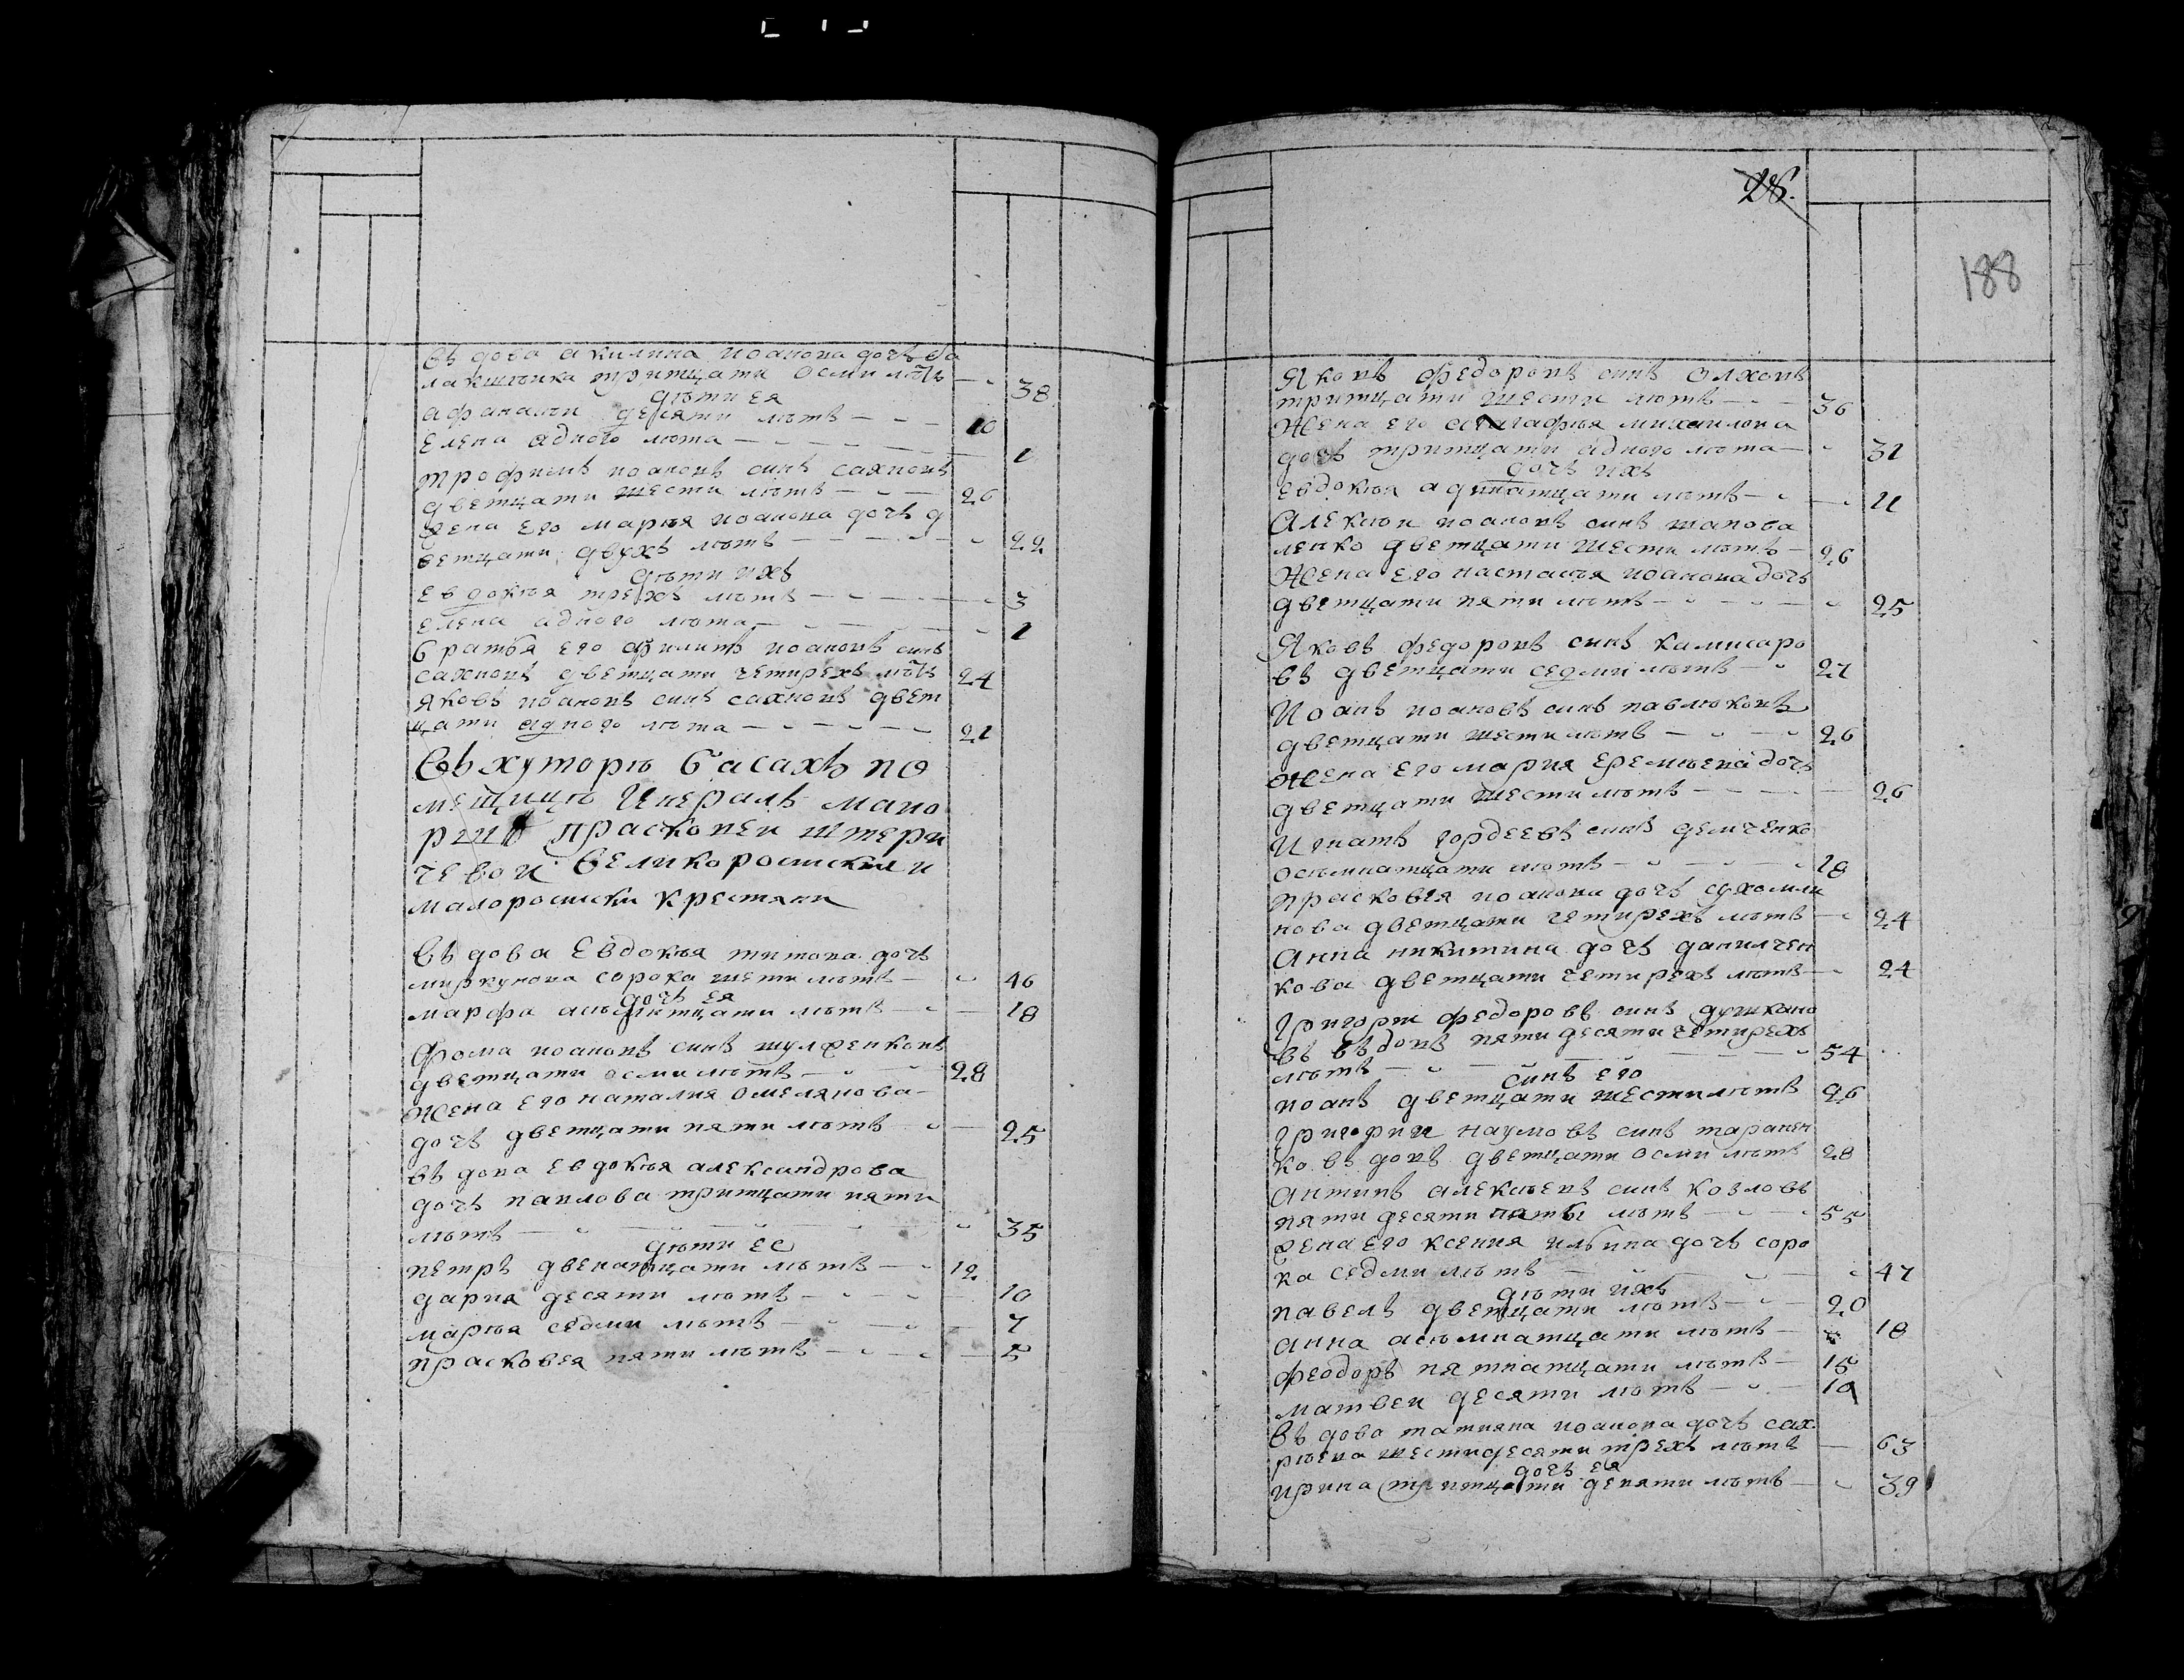 въ дова акилина иоанова дочъ ба
лакшъика тритцати осми лѣтъ — 38
дѣти ея
афанасъи десяти лѣтъ — 10
елена адного лѣта — 1
трофимъ иоановъ синъ сахновъ
дветцати шести лѣтъ — 26
жена его марѣя иоанова дочъ д
ветцати двухъ лѣтъ — 22
дѣти ихъ
евдокѣя трехъ лѣтъ — 3
елена адного лѣта — 1
братъя его филипъ иоановъ синъ
сахновъ дветцати четирехъ лѣтъ 24
яковъ иоановъ синъ сахновъ двет
цати адного лѣта — 21
Въ хуторѣ басахъ по
мещицѣ Инералъ мапо
рши Прасковеи штери
чевои великоросиские и
малоросииски крестяни
въ дова Евдокѣя титова дочъ
миркунова сорока шети лѣтъ — 46
дочъ ея
марфа асѣмнатцати лѣтъ — 18
Фома иоановъ синъ шулженковъ
дветцати осми лѣтъ — 28
Жена его наталия омелянова
дочъ дветцати пяти лѣтъ — 25
въ дова евдокѣя александрова
дочъ павлова тритцати пяти
лѣтъ — 35
дѣти ее
петръ двенатцати лѣтъ — 12
дария десяти лѣтъ — 10
марѣя седми лѣтъ — 7
прасковея пяти лѣтъ — 5
28.
188
Яковъ федоровъ синъ Олховъ
тритцати шести лѣтъ — 36
Жена его агафѣя михаилова
дочъ тритцати адного лѣта — 31
дочъ ихъ
евдокѣя адинатцати лѣтъ — 11
Алексѣи иоановъ синъ шапова
ленко дветцати шести лѣтъ — 26
Жена его настасѣя иоанова дочъ
дветцати пяти лѣтъ — 25
Яковъ федоровъ синъ камисаро
въ дветцати седми лѣтъ — 27
Иоанъ иоановъ синъ павлюковъ
дветцати шести лѣтъ — 26
Жена его мария еремѣева дочъ
дветцати шести лѣтъ — 26
Игнатъ гордеевъ синъ демченко
осѣмнатцати лѣтъ — 18
прасковея иоанова дочъ сухомли
нова дветцати четирехъ лѣтъ — 24
Анна никитина дочъ данилчен
кова дветцати четирехъ лѣтъ — 24
Григорѣи федоровъ синъ душкано
въ въ довъ пяти десяти четирехъ
лѣтъ — 54
синъ его
иоанъ дветцати шести лѣтъ 26
Григории наумовъ синъ таранен
ко въ довъ дветцати осми лѣтъ 28
Антипъ алексѣевъ синъ козловъ
пяти десяти пяти лѣтъ — 55
жена его ксения илбина дочъ соро
ка седми лѣтъ — 47
дѣти ихъ
павелъ дветцати лѣтъ — 20
анна асѣмнатцати лѣтъ — 18
феодоръ пятнатцати лѣтъ — 15
матвеи десяти лѣтъ — 10
въ дова татияна иоанова дочъ сах
рѣева шестидесяти трехъ лѣтъ — 63
дочъ ея
ирина тритцати девяти лѣтъ — 39